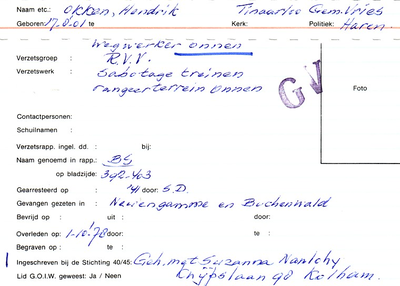 Naam etc.: Okken, Hendrik Tinaarloo Gem. Vries
Geboren: 17.8.01 te Kerk: Politiek: Haren.
Wegwerker onnen
Verzetsgroep : R.V.V.
Verzetswerk : Sabotage treinen
rangeerterrein onnen
Foto
Contactpersonen:
Schuilnaam :
Verzetsrapp. ingel. dd. : bij:
Naam genoemd in rapp.: BS
op bladzijde: 392-403
Gearresteerd op : '41 door: S.D.
Gevangen gezeten in : Neuengamme en Buchenwald
Bevrijd op : uit : door:
Overleden op : 1-10-78 door: te :
Begraven op : te :
Ingeschreven bij de Stichting 40/45: Geh. met Suzanna
Lid G.O.I.W. geweest: Ja / Neen 98 Kolham.